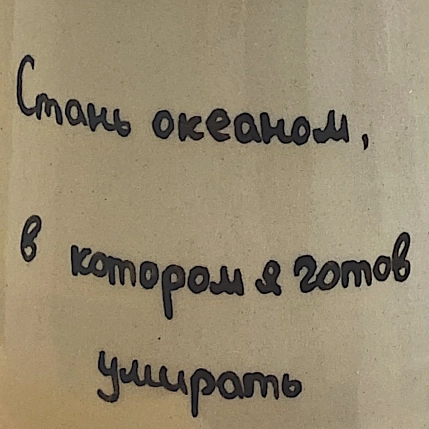 Стань океаном,
в котором я готов
умирать